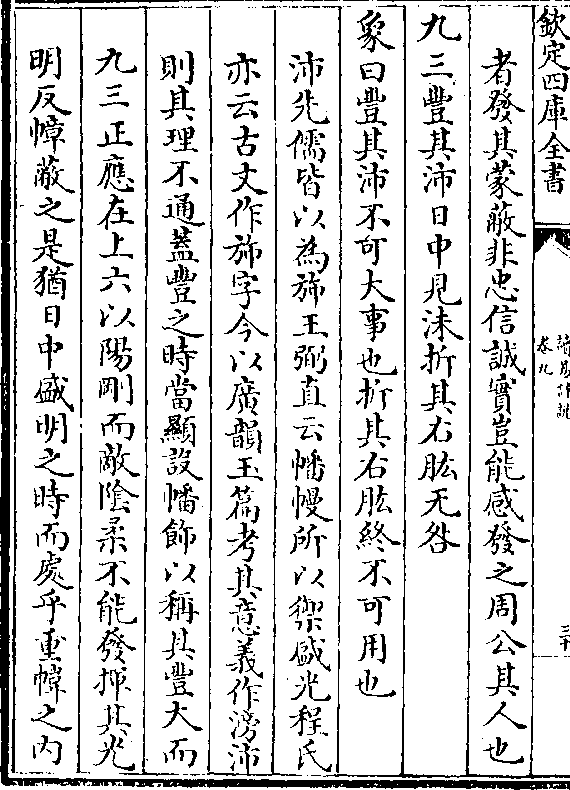 欽定四庫全書
者發其蒙蔽非忠信誠實豈能感發之周公其人也
九三豐其沛日中見沬折其右肱无咎
象曰豐其沛不可大事也折其右肱終不可用也
沛先儒皆以為斾王弼直云幡幔所以禦盛光程氏
亦云古文作斾字今以廣韻玉篇考其意義作滂沛
則其理不通葢豐之時當顯設幡飾以稱其豐大而
九三正應在上六以陽剛而敵陰柔不能發揮其光
明反幛蔽之是猶日中盛明之時而處乎重幛之内